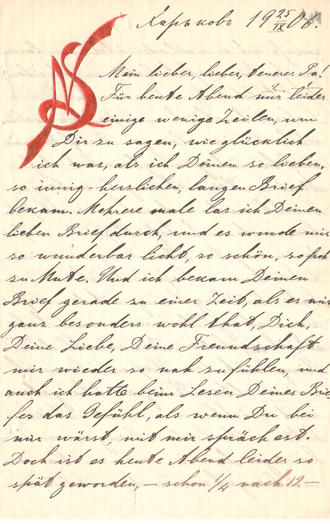 Харьковъ 19 25/IX 06.
Mein lieber, lieber, teurer Pa!
Für heute Abend nur leider
einige wenige Zeilen, um
Dir zu sagen, wie glücklich
ich war, als ich Deinen so lieben,
so innig-herzlichen, langen Brief
bekam. Mehrere male las ich Deinen
lieben Brief durch, und es wurde mir
so wunderbar licht, so schön, so froh
zu Mute. Und ich bekam Deinen
Brief gerade zu einer Zeit, als es mir
ganz besonders wohl that, Dich,
Deine Liebe, Deine Freundschaft
mir wieder so nah zu fühlen, und
auch ich hatte beim Lesen Deines Brie-
fes das Gefühl, als wenn Du bei
mir wärst, mit mir sprächest.
Doch ist es heute Abend leider so
spät geworden, – schon 1/4 nach 12. –